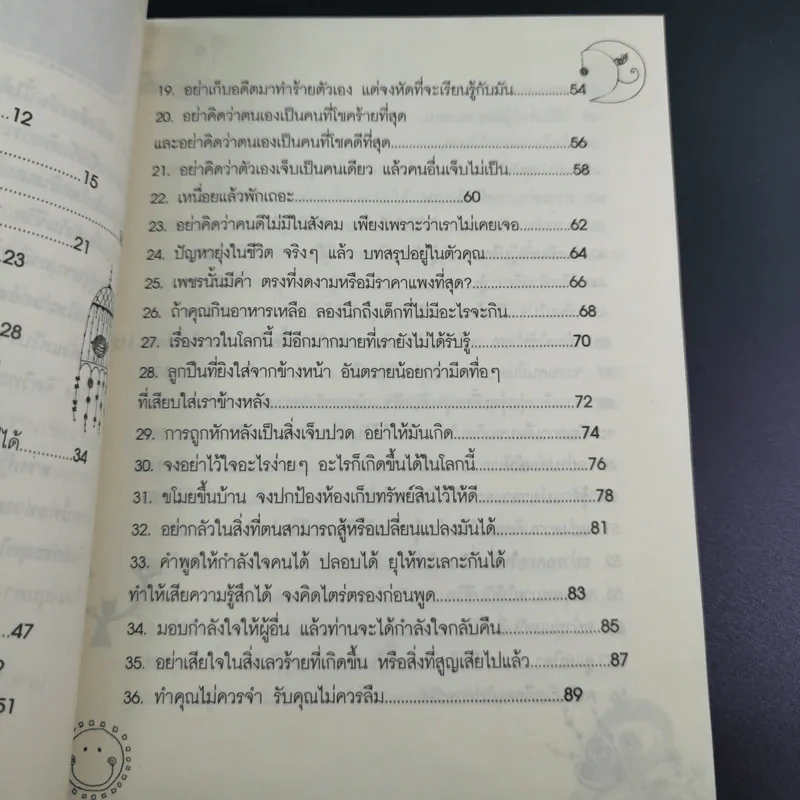 12
15
21
23
28
ได้. 34
47
51
19. อย่าเก็บอดีตมาทำร้ายตัวเอง แต่จงหัดที่จะเรียนรู้กับมัน..............54
20. อย่าคิดว่าตนเองเป็นคนที่โชคร้ายที่สุด
และอย่าคิดว่าตนเองเป็นคนที่โชคดีที่สุด............................................56
21. อย่าคิดว่าตัวเองเจ็บเป็นคนเดียว แล้วคนอื่นเจ็บไม่เป็น................58
22. เหนื่อยแล้วพักเถอะ............................................60
23. อย่าคิดว่าคนดีไม่มีในสังคม เพียงเพราะว่าเราไม่เคยเจอ.............62
24. ปัญหายุ่งในชีวิต จริงๆ แล้ว บทสรุปอยู่ในตัวคุณ......................64
25. เพชรนั้นมีค่า ตรงที่งดงามหรือมีราคาแพงที่สุด?........................66
26. ถ้าคุณกินอาหารเหลือ ลองนึกถึงเด็กที่ไม่มีอะไรจะกิน..................68
27. เรื่องราวในโลกนี้ มีอีกมากมายที่เรายังไม่ได้รับรู้..........................70
28. ลูกปืนที่ยิงใส่จากข้างหน้า อันตรายน้อยกว่ามีดทื่อๆ
ที่เสียบใส่เราข้างหลัง..............................................................................72
29. การถูกหักหลังเป็นสิ่งเจ็บปวด อย่าให้มันเกิด................................74
30. จงอย่าไว้ใจอะไรง่ายๆ อะไรก็เกิดขึ้นได้ในโลกนี้............................76
31. ขโมยขึ้นบ้าน จงปกป้องห้องเก็บทรัพย์สินไว้ให้ดี...........................78
32. อย่ากลัวในสิ่งที่ตนสามารถสู้หรือเปลี่ยนแปลงมันได้.......................81
33. คำพูดให้กำลังใจคนได้ ปลอบได้ ยุให้ทะเลาะกันได้
ทำให้เสียความรู้สึกได้ จงคิดไตร่ตรองก่อนพูด.................................83
34. มอบกำลังใจให้ผู้อื่น แล้วท่านจะได้กำลังใจกลับคืน.........................85
35. อย่าเสียใจในสิ่งเลวร้ายที่เกิดขึ้น หรือสิ่งที่สูญเสียไปแล้ว................87
36. ทำคุณไม่ควรจำ รับคุณไม่ควรลืม............................................89